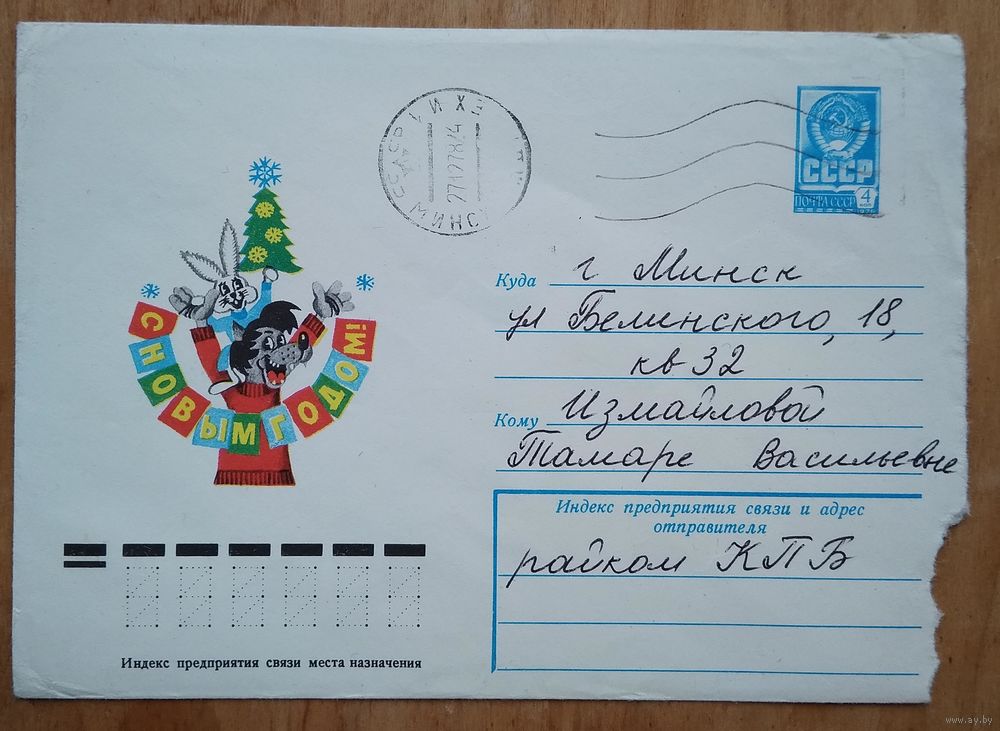 МИНСК
27127824
СССР
ПОЧТА СССР 4
С НОВЫМ ГОДОМ!
Куда г Минск
ул Белинского, 18,
кв 32
Кому Измайловой
Тамаре Васильевне
Индекс предприятия связи и адрес
отправителя
райком КПБ
Индекс предприятия связи места назначения
www.ay.by